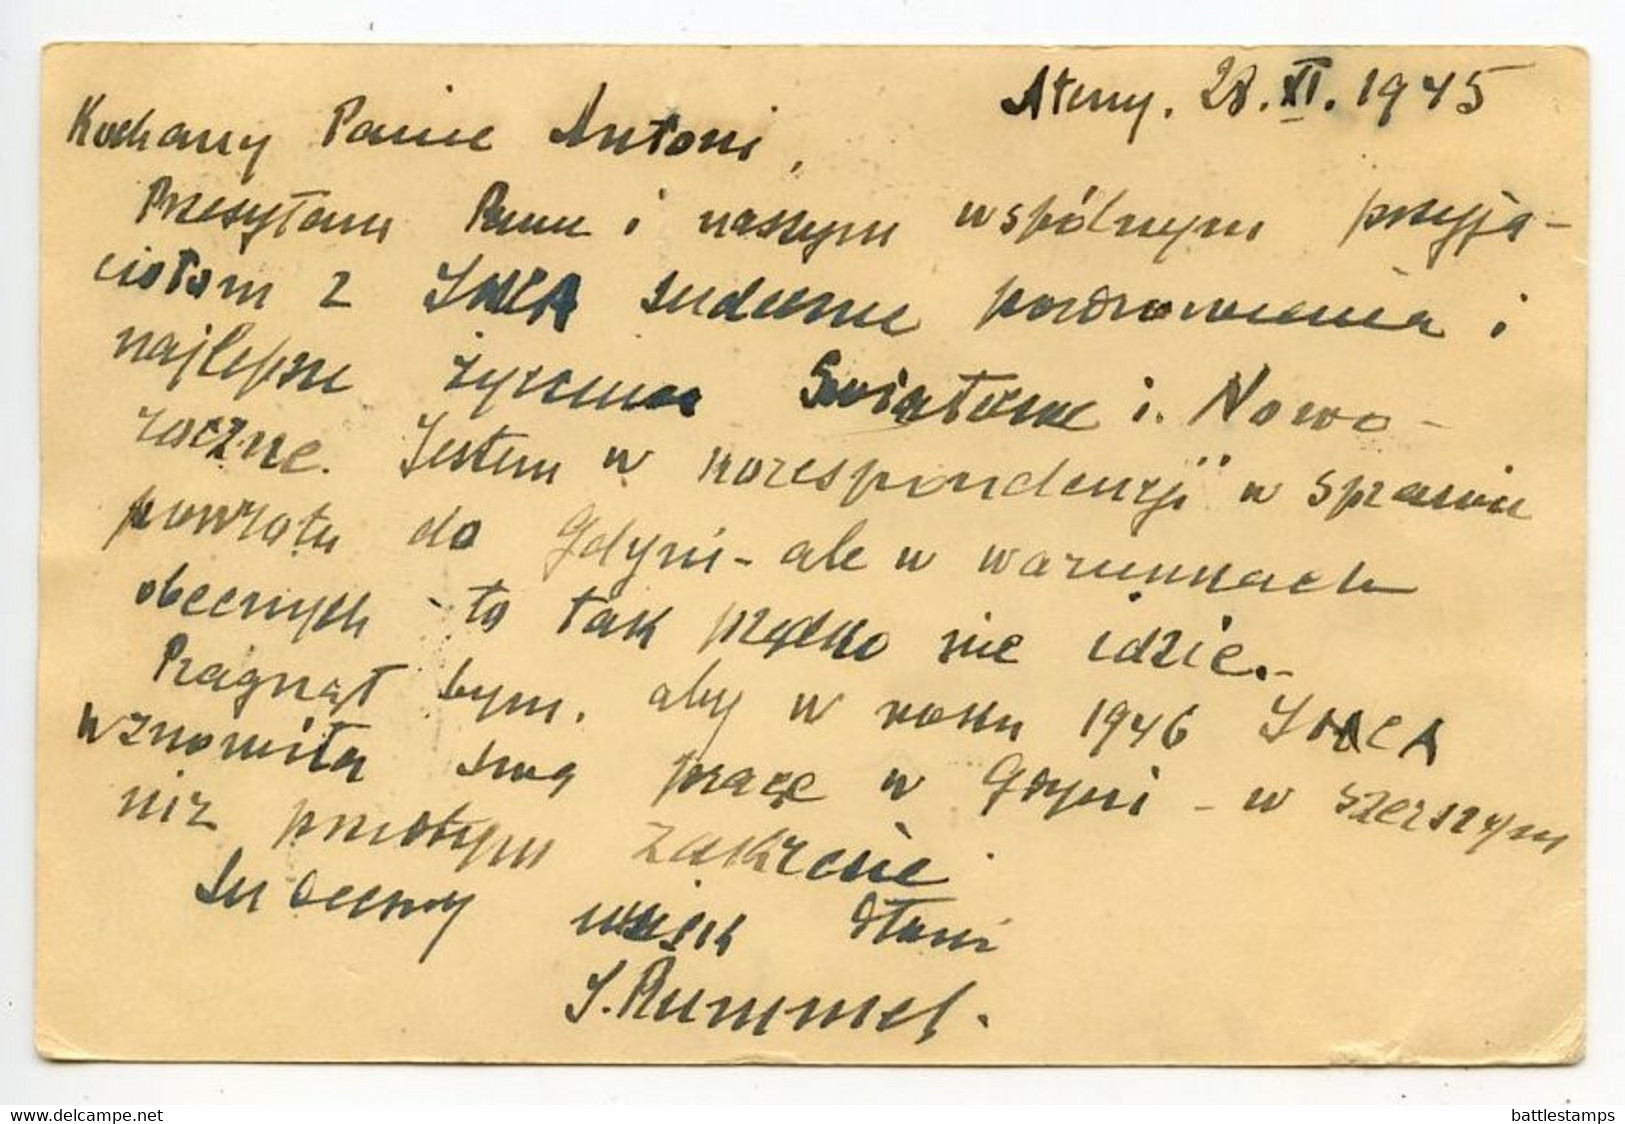 Ateny, 28.XI.1945
Kochany Panie Antoni,
Przesyłam Panu i naszym wspólnym przyja-
ciołom z YMCA serdeczne pozdrowienia i
najlepsze życzenia Świąteczne i Nowo-
roczne. Jestem w korespondencji w sprawie
powrotu do Gdyni - ale w warunkach
obecnych - to tak prędko nie idzie.-
Pragnął bym, aby w roku 1946 YMCA
wznowiła swą pracę w Gdyni - w szerszym
niż przedtym zakresie
Serdeczny uścisk dłoni
J. Rummel.
delcampe.net
battlestamps